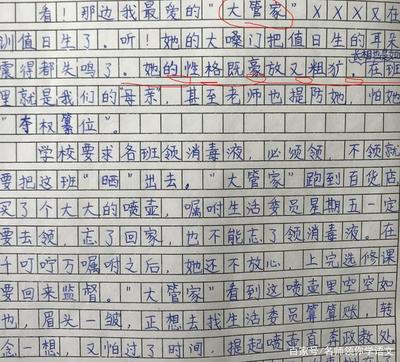 看！那边我最爱的"大管家"XXX又在
训值日生了。听！她的大嗓门把值日生的耳朵
震得都失鸣了。她的性格既豪放又粗犷，在班
里就是我们的"母亲"，甚至老师也提防她，怕她
"夺权篡位"。
学校要求各班领消毒液，必须领，不领就
要把这班"晒"出去。"大管家"跑到百货店，
买了个大大的喷壶，嘱咐生活委员星期五一定
要去领，忘了回家，也不能忘了领消毒液。在
千叮咛万嘱咐之后，她还不放心，上完选修课
要回来监督。"大管家"看到这喷壶里空空如
也，眉头一皱，正想去找生活委员算算账，转
念一想，又怕过了时间，提起喷壶直奔政教处
百家号/名师领你学语文